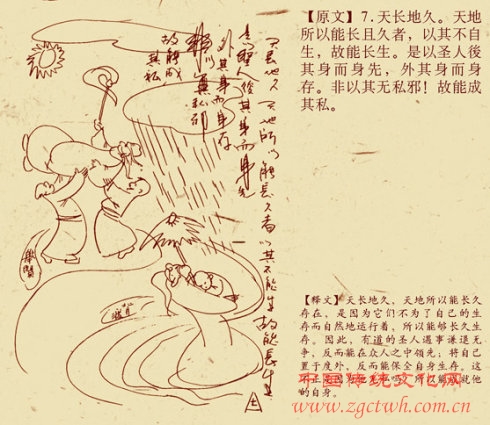 【原文】7.天长地久。天地
所以能长且久者，以其不自
生，故能长生。是以圣人後
其身而身先，外其身而身
存。非以其无私邪！故能成
其私。
天長地久 天地所以能長久者以其不能生故能長生
是以聖人後其身而身先
外其身而身存
非以其無私邪
故能成
其私
七
【释文】天长地久，天地所以能长久
存在，是因为它们不为了自己的生
存而自然地运行着，所以能够长久生
存。因此，有道的圣人遇事谦退无
争，反而能在众人之中领先；将自己
置于度外，反而能保全自身生存。这
不正是因为他无私吗？所以能成就他
的自身。
中国传统文化网
www.zgctwh.com.cn